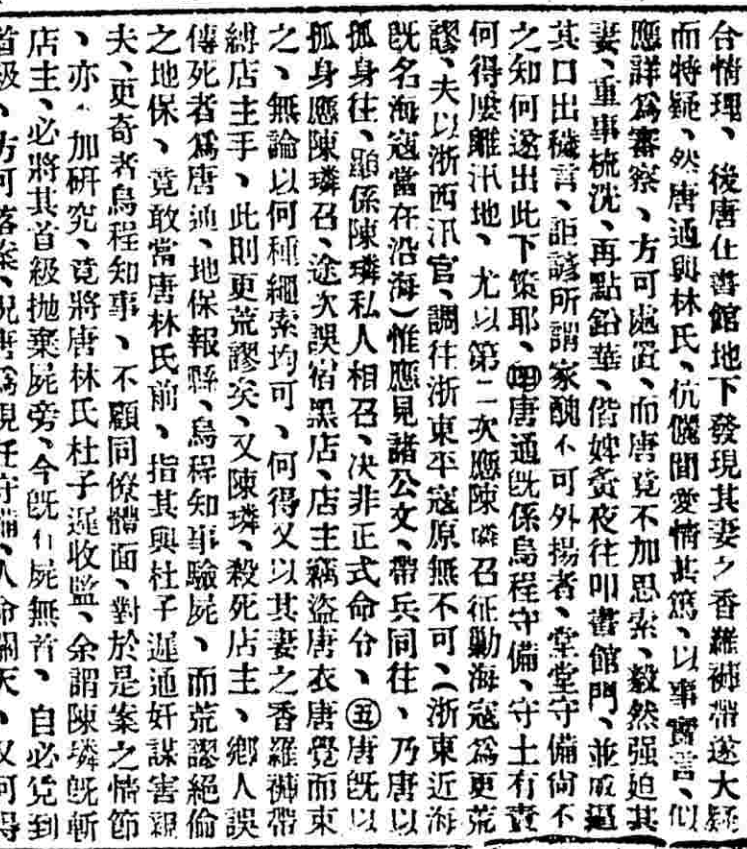 合情理、後唐仕書館地下發現其妻之香羅褲帶遂大疑
而特疑、然唐通與林氏、伉儷間愛情甚篤、以事實言、似
應詳爲審察、方可處置、而唐竟不加思索、毅然强迫其
妻、重事梳洗、再點鉛華、偕婢夤夜往叩書館門、並威逼
其口出穢言、詎諺所謂家醜不可外揚者、堂堂守備尙不
之知何遂出此下策耶、㊃唐通旣係烏程守備、守土有責
何得屢離汛地、尤以第二次應陳璘召征勦海寇爲更荒
謬、夫以浙西汛官、調往浙東平寇原無不可、(浙東近海
旣名海寇當在沿海)惟應見諸公文、帶兵同往、乃唐以
孤身往、顯係陳璘私人相召、决非正式命令、㊄唐旣以
孤身應陳璘召、途次誤宿黑店、店主竊盜唐衣唐覺而束
之、無論以何種繩索均可、何得又以其妻之香羅褲帶
縛店主手、此則更荒謬矣、又陳璘、殺死店主、鄉人誤
傳死者爲唐通、地保報縣、烏程知事驗屍、而荒謬絕倫
之地保、竟敢當唐林氏前、指其與杜子遲通奸謀害親
夫、更奇者烏程知事、不顧同僚體面、對於是案之情節
、亦 加硏究、竟將唐林氏杜子遲收監、余謂陳璘旣斬
店主、必將其首級抛棄屍旁、今旣有屍無首、自必覓到
首級、方可落案、况唐爲現任守備、人命關天、又何得